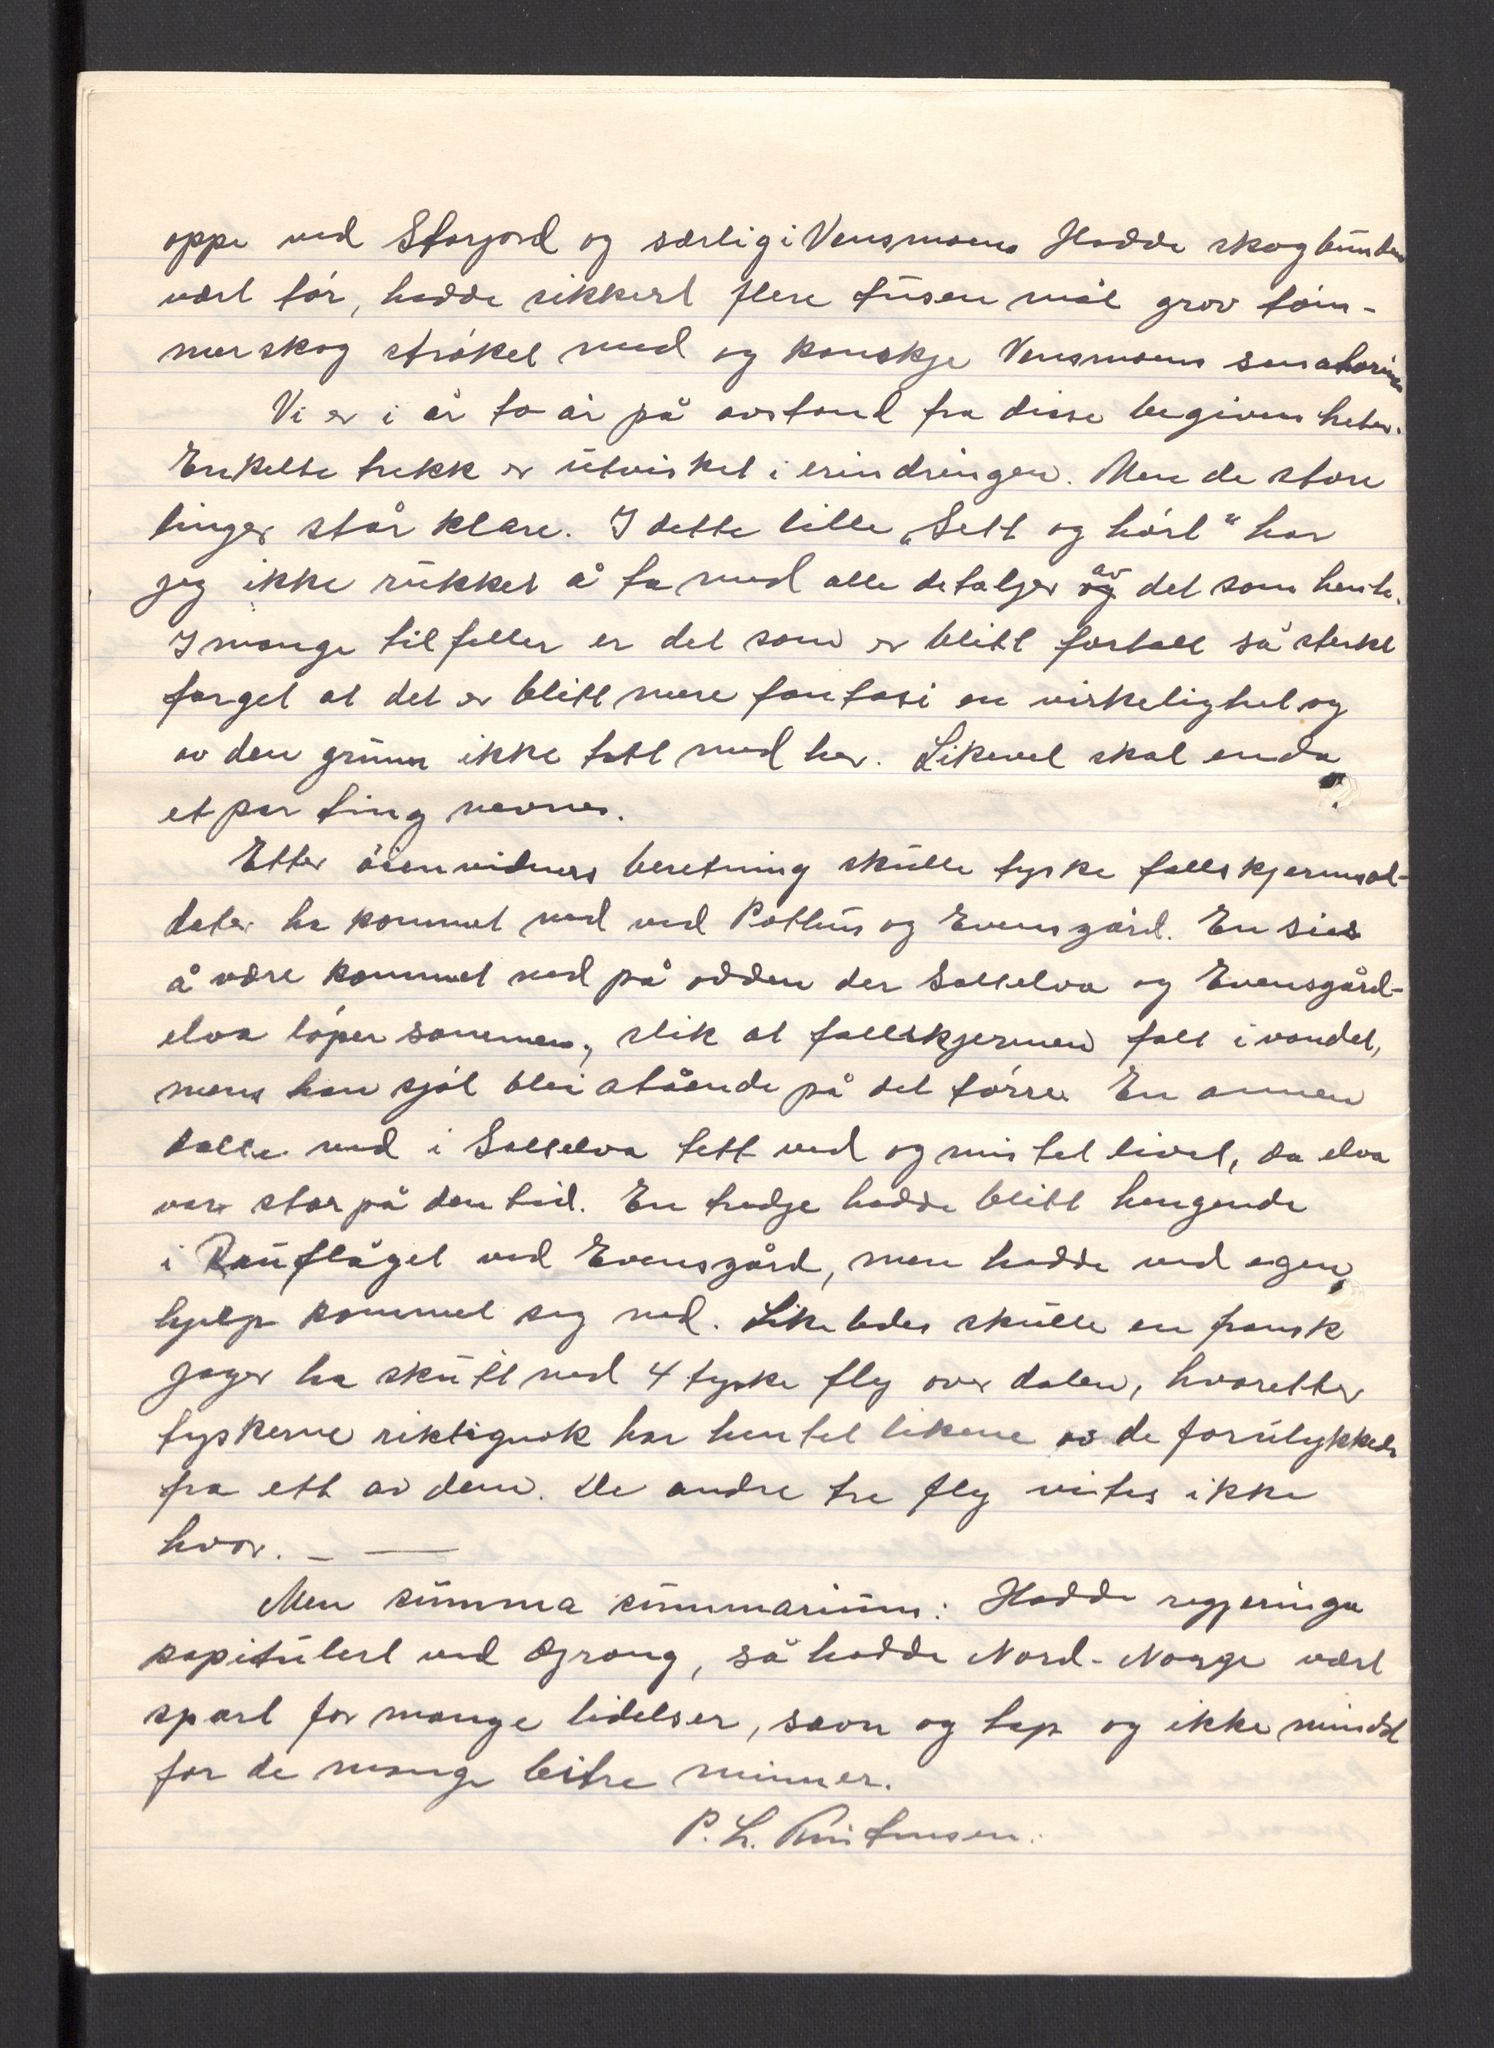 oppe ved Storjord og særlig i Vensmoen. Hadde skogbunden
vært tør, hadde sikkert flere tusen mål grov tøm-
merskog strøket med og kanskje Vensmoens sanatorium
Vi er i år to år på avstand fra disse begivenheter.
Enkelte trekk er utvisket i erindringen. Men de store
linjer står klare. I dette lille „Sett og hørt" har
jeg ikke rukket å ta med alle detaljer av det som hente.
I mange tilfeller er det som er blitt fortalt så sterkt
farget at det er blitt mere fantasi en virkelighet og
av den grunn ikke tatt med her. Likevel skal enda
et par ting nevnes.
Etter øienvidners beretning skulle tyske fallskjermsol-
dater ha kommet ned ved Pothus og Evensgård. En sies
å være kommet ned på odden der Saltelva og Evensgård-
elva løper sammen, slik at fallskjermen falt i vandet,
mens han sjøl blei stående på det tørre. En annen
dalte ned i Saltelva tett ved og mistet livet, da elva
var stor på den tid. En tredje hadde blitt hengende
i Rauflåget ved Evensgård, men hadde ved egen
hjelp kommet seg ned. Likeledes skulle en fransk
jager ha skutt ned 4 tyske fly over dalen, hvoretter
tyskerne riktignok har hentet likene av de forulykkede
fra ett av dem. De andre tre fly vites ikke
hvor. – —
Men summa summarium: Hadde regjeringa
kapitulert ved Grong, så hadde Nord-Norge vært
spart for mange lidelser, savn og tap og ikke mindst
for de mange beitre minner.
P. L. Kristensen.